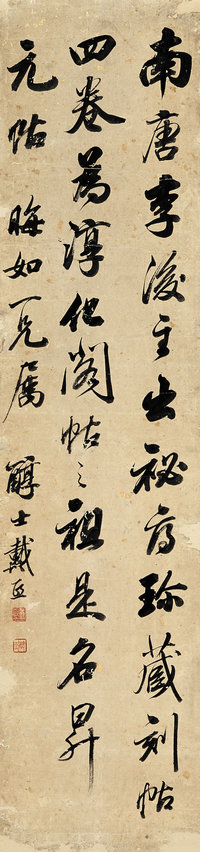 南唐李後主出秘府珍藏刻帖
四卷為淳化閣帖之祖是名昇
元帖 晦如一兄屬 醇士戴熙